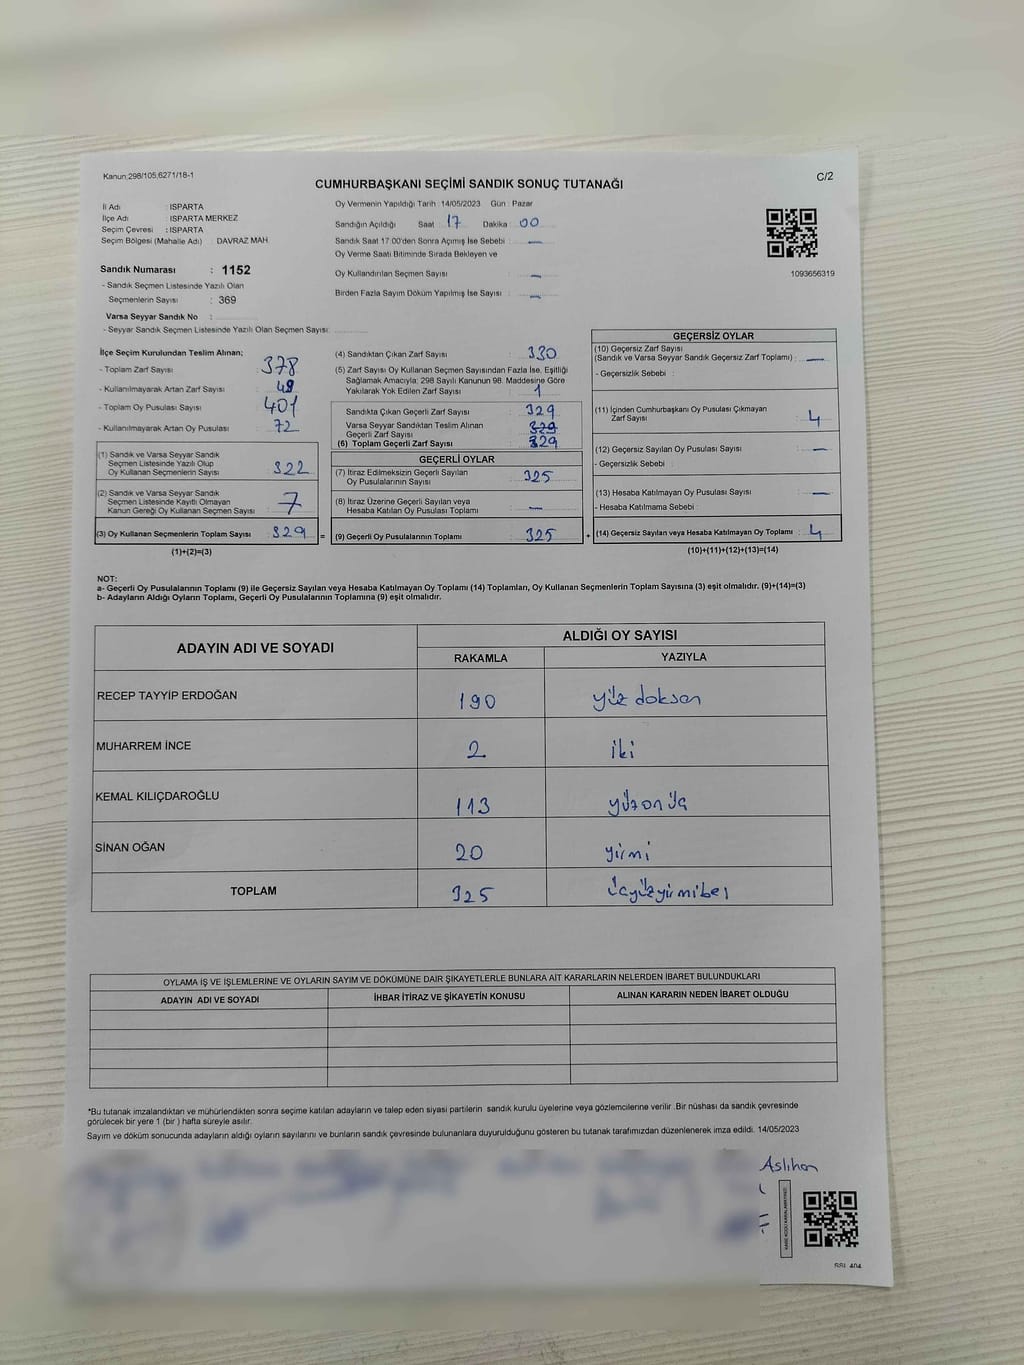 Kanun;298/105,6271/18-1
CUMHURBAŞKANI SEÇİMİ SANDIK SONUÇ TUTANAĞI
C/2
İl Adı : ISPARTA
İlçe Adı : ISPARTA MERKEZ
Seçim Çevresi : ISPARTA
Seçim Bölgesi (Mahalle Adı) : DAVRAZ MAH.
Oy Vermenin Yapıldığı Tarih : 14/05/2023 Gün : Pazar
Sandığın Açıldığı Saat : 17 Dakika : 00
Sandık Saat 17:00'den Sonra Açımış İse Sebebi : —
Oy Verme Saati Bitiminde Sırada Bekleyen ve
Oy Kullandırılan Seçmen Sayısı : —
Birden Fazla Sayım Döküm Yapılmış İse Sayısı : —
1093656319
Sandık Numarası : 1152
- Sandık Seçmen Listesinde Yazılı Olan
Seçmenlerin Sayısı : 369
Varsa Seyyar Sandık No :
- Seyyar Sandık Seçmen Listesinde Yazılı Olan Seçmen Sayısı:
İlçe Seçim Kurulundan Teslim Alınan;
- Toplam Zarf Sayısı : 378
- Kullanılmayarak Artan Zarf Sayısı : 49
- Toplam Oy Pusulası Sayısı : 401
- Kullanılmayarak Artan Oy Pusulası : 72
(1) Sandık ve Varsa Seyyar Sandık
Seçmen Listesinde Yazılı Olup
Oy Kullanan Seçmenlerin Sayısı : 322
(2) Sandık ve Varsa Seyyar Sandık
Seçmen Listesinde Kayıtlı Olmayan
Kanun Gereği Oy Kullanan Seçmen Sayısı : 7
(3) Oy Kullanan Seçmenlerin Toplam Sayısı : 329 =
(1)+(2)=(3)
(4) Sandıktan Çıkan Zarf Sayısı : 330
(5) Zarf Sayısı Oy Kullanan Seçmen Sayısından Fazla İse, Eşitliği
Sağlamak Amacıyla; 298 Sayılı Kanunun 98. Maddesine Göre
Yakılarak Yok Edilen Zarf Sayısı : 1
Sandıkta Çıkan Geçerli Zarf Sayısı : 329
Varsa Seyyar Sandıktan Teslim Alınan
Geçerli Zarf Sayısı : 329
(6) Toplam Geçerli Zarf Sayısı : 329
GEÇERLİ OYLAR
(7) İtiraz Edilmeksizin Geçerli Sayılan
Oy Pusulalarının Sayısı : 325
(8) İtiraz Üzerine Geçerli Sayılan veya
Hesaba Katılan Oy Pusulası Toplamı : —
(9) Geçerli Oy Pusulalarının Toplamı : 325 +
GEÇERSİZ OYLAR
(10) Geçersiz Zarf Sayısı
(Sandık ve Varsa Seyyar Sandık Geçersiz Zarf Toplamı) : —
- Geçersizlik Sebebi :
(11) İçinden Cumhurbaşkanı Oy Pusulası Çıkmayan
Zarf Sayısı : 4
(12) Geçersiz Sayılan Oy Pusulası Sayısı : —
- Geçersizlik Sebebi :
(13) Hesaba Katılmayan Oy Pusulası Sayısı : —
- Hesaba Katılmama Sebebi :
(14) Geçersiz Sayılan veya Hesaba Katılmayan Oy Toplamı : 4
(10)+(11)+(12)+(13)=(14)
NOT:
a- Geçerli Oy Pusulalarının Toplamı (9) ile Geçersiz Sayılan veya Hesaba Katılmayan Oy Toplamı (14) Toplamları, Oy Kullanan Seçmenlerin Toplam Sayısına (3) eşit olmalıdır. (9)+(14)=(3)
b- Adayların Aldığı Oyların Toplamı, Geçerli Oy Pusulalarının Toplamına (9) eşit olmalıdır.
ADAYIN ADI VE SOYADI
ALDIĞI OY SAYISI
RAKAMLA YAZIYLA
RECEP TAYYİP ERDOĞAN 190 yüz doksan
MUHARREM İNCE 2 iki
KEMAL KILIÇDAROĞLU 113 yüzonüç
SİNAN OĞAN 20 yirmi
TOPLAM 325 üçyüzyirmibeş
OYLAMA İŞ VE İŞLEMLERİNE VE OYLARIN SAYIM VE DÖKÜMÜNE DAİR ŞİKAYETLERLE BUNLARA AİT KARARLARIN NELERDEN İBARET BULUNDUKLARI
ADAYIN ADI VE SOYADI İHBAR İTİRAZ VE ŞİKAYETİN KONUSU ALINAN KARARIN NEDEN İBARET OLDUĞU
*Bu tutanak imzalandıktan ve mühürlendikten sonra seçime katılan adayların ve talep eden siyasi partilerin sandık kurulu üyelerine veya gözlemcilerine verilir. Bir nüshası da sandık çevresinde
görülecek bir yere 1 (bir ) hafta süreyle asılır.
Sayım ve döküm sonucunda adayların aldığı oyların sayılarını ve bunların sandık çevresinde bulunanlara duyurulduğunu gösteren bu tutanak tarafımızdan düzenlenerek imza edildi. 14/05/2023
Aslıhan